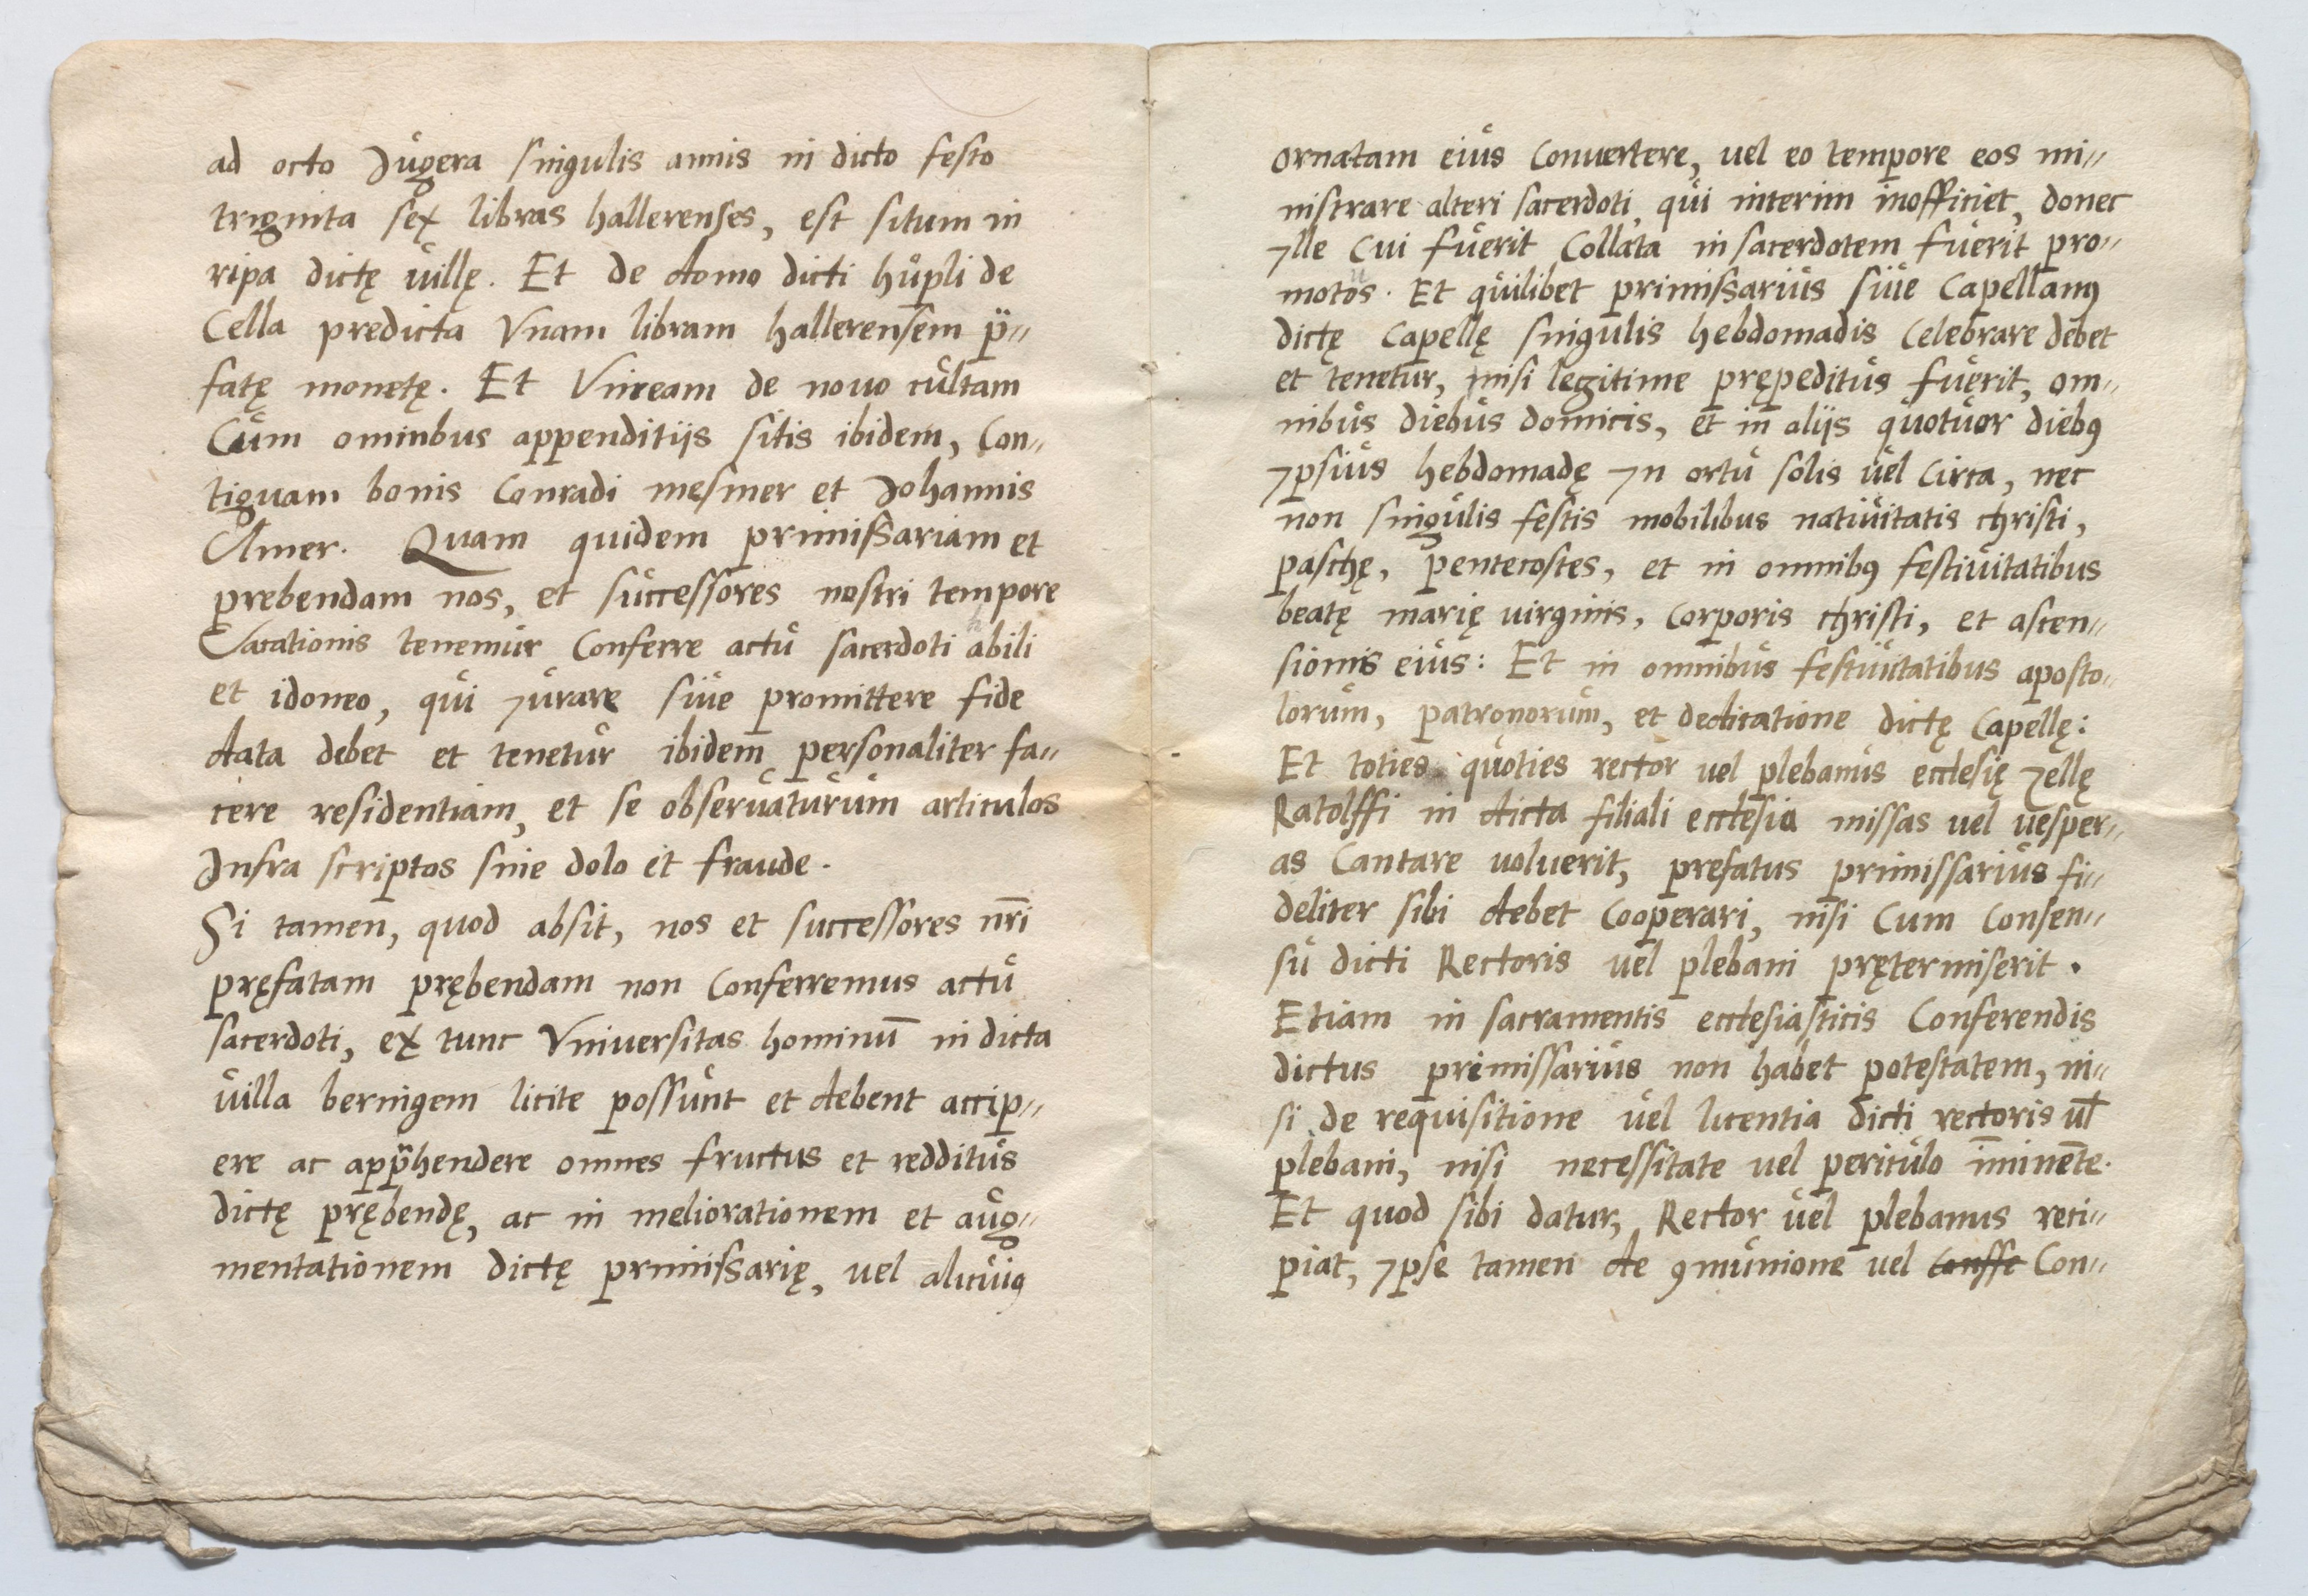 ad octo Jugera singulis annis in dicto festo
triginta sex libras hallerenses, est situm in
ripa dictę villę. Et de domo dicti hůpli de
Cella predicta Vnam libram hallerensem p̈//
fatę monetę. Et Vineam de nouo cultam
Cům ominbus appenditijs sitis ibidem, Con//
tiguam bonis Conradi mesmer et Johannis
Olmer. Quam quidem primissariam et
prebendam nos, et sůccessores nostri tempore
Vacationis tenemůr Conferre actů sacerdoti abili
et idoneo, qůi Jůrare siůe promittere fide
data debet et tenetůr ibidem personaliter fa//
cere residentiam, et se obserůatůrům articulos
Jnfra scriptos sine dolo et fraude.
Si tamen, quod absit, nos et successores nr̄i
pręfatam prębendam non Conferremus actů
sacerdoti, ex tunc Vniuersitas hominū in dicta
ůilla bernigem licite possůnt et debent accip//
ere ac app̈hendere omnes fructus et redditůs
dictę pręběndę, ac in meliorationem et aůg//
mentationem dictę primissarię, vel alicůiꝰ
ornatam eiůs Conuertere, uel eo tempore eos mi//
nistrare alteri sacerdoti, qůi interim inofficiet, donec
Jlle Cui fůerit Collata in sacerdotem fůerit pro//
motůs. Et qůilibet primissariůs siůe Capellanꝰ
dictę Capellę singulis hebdomadis Celebrare debet
et tenetůr, nisi legitime prępeditůs fůerit, om//
nibůs diebůs domicis, et in alijs qůotůor diebꝰ
Jpsiůs hebdomadę Jn ortů solis ůel Circa, nec
non singůlis festis mobilibus natiůitatis christi,
paschę, pentecostes, et in omnibꝰ festiůitatibus
beatę marię uirginis, Corporis christi, et ascen//
sionis eiůs: Et in omnibůs festiůitatibus aposto//
lorům, patronorům, et dedicatione dictę Capellę:
Et toties qůoties rector uel plebanůs ecclesię Zellę
Ratolffi in dicta filiali ecclesia missas uel uesper//
as Cantare uoluerit, prefatus primissariůs fi//
deliter sibi debet Cooperari, nisi Cum Consen//
sů dicti Rectoris ůel plebani prętermiserit.
Etiam in sacramentis ecclesiasticis Conferendis
dictus primissariůs non habet potestatem, ni//
si de requisitione ůel licentia dicti rectoris ul̄
plebani, nisi necessitate uel pericůlo im̄inēte.
Et quod sibi datur, Rector ůel plebanus reci//
piat, Jpse tamen de ꝯmůnione uel Conffe Con//